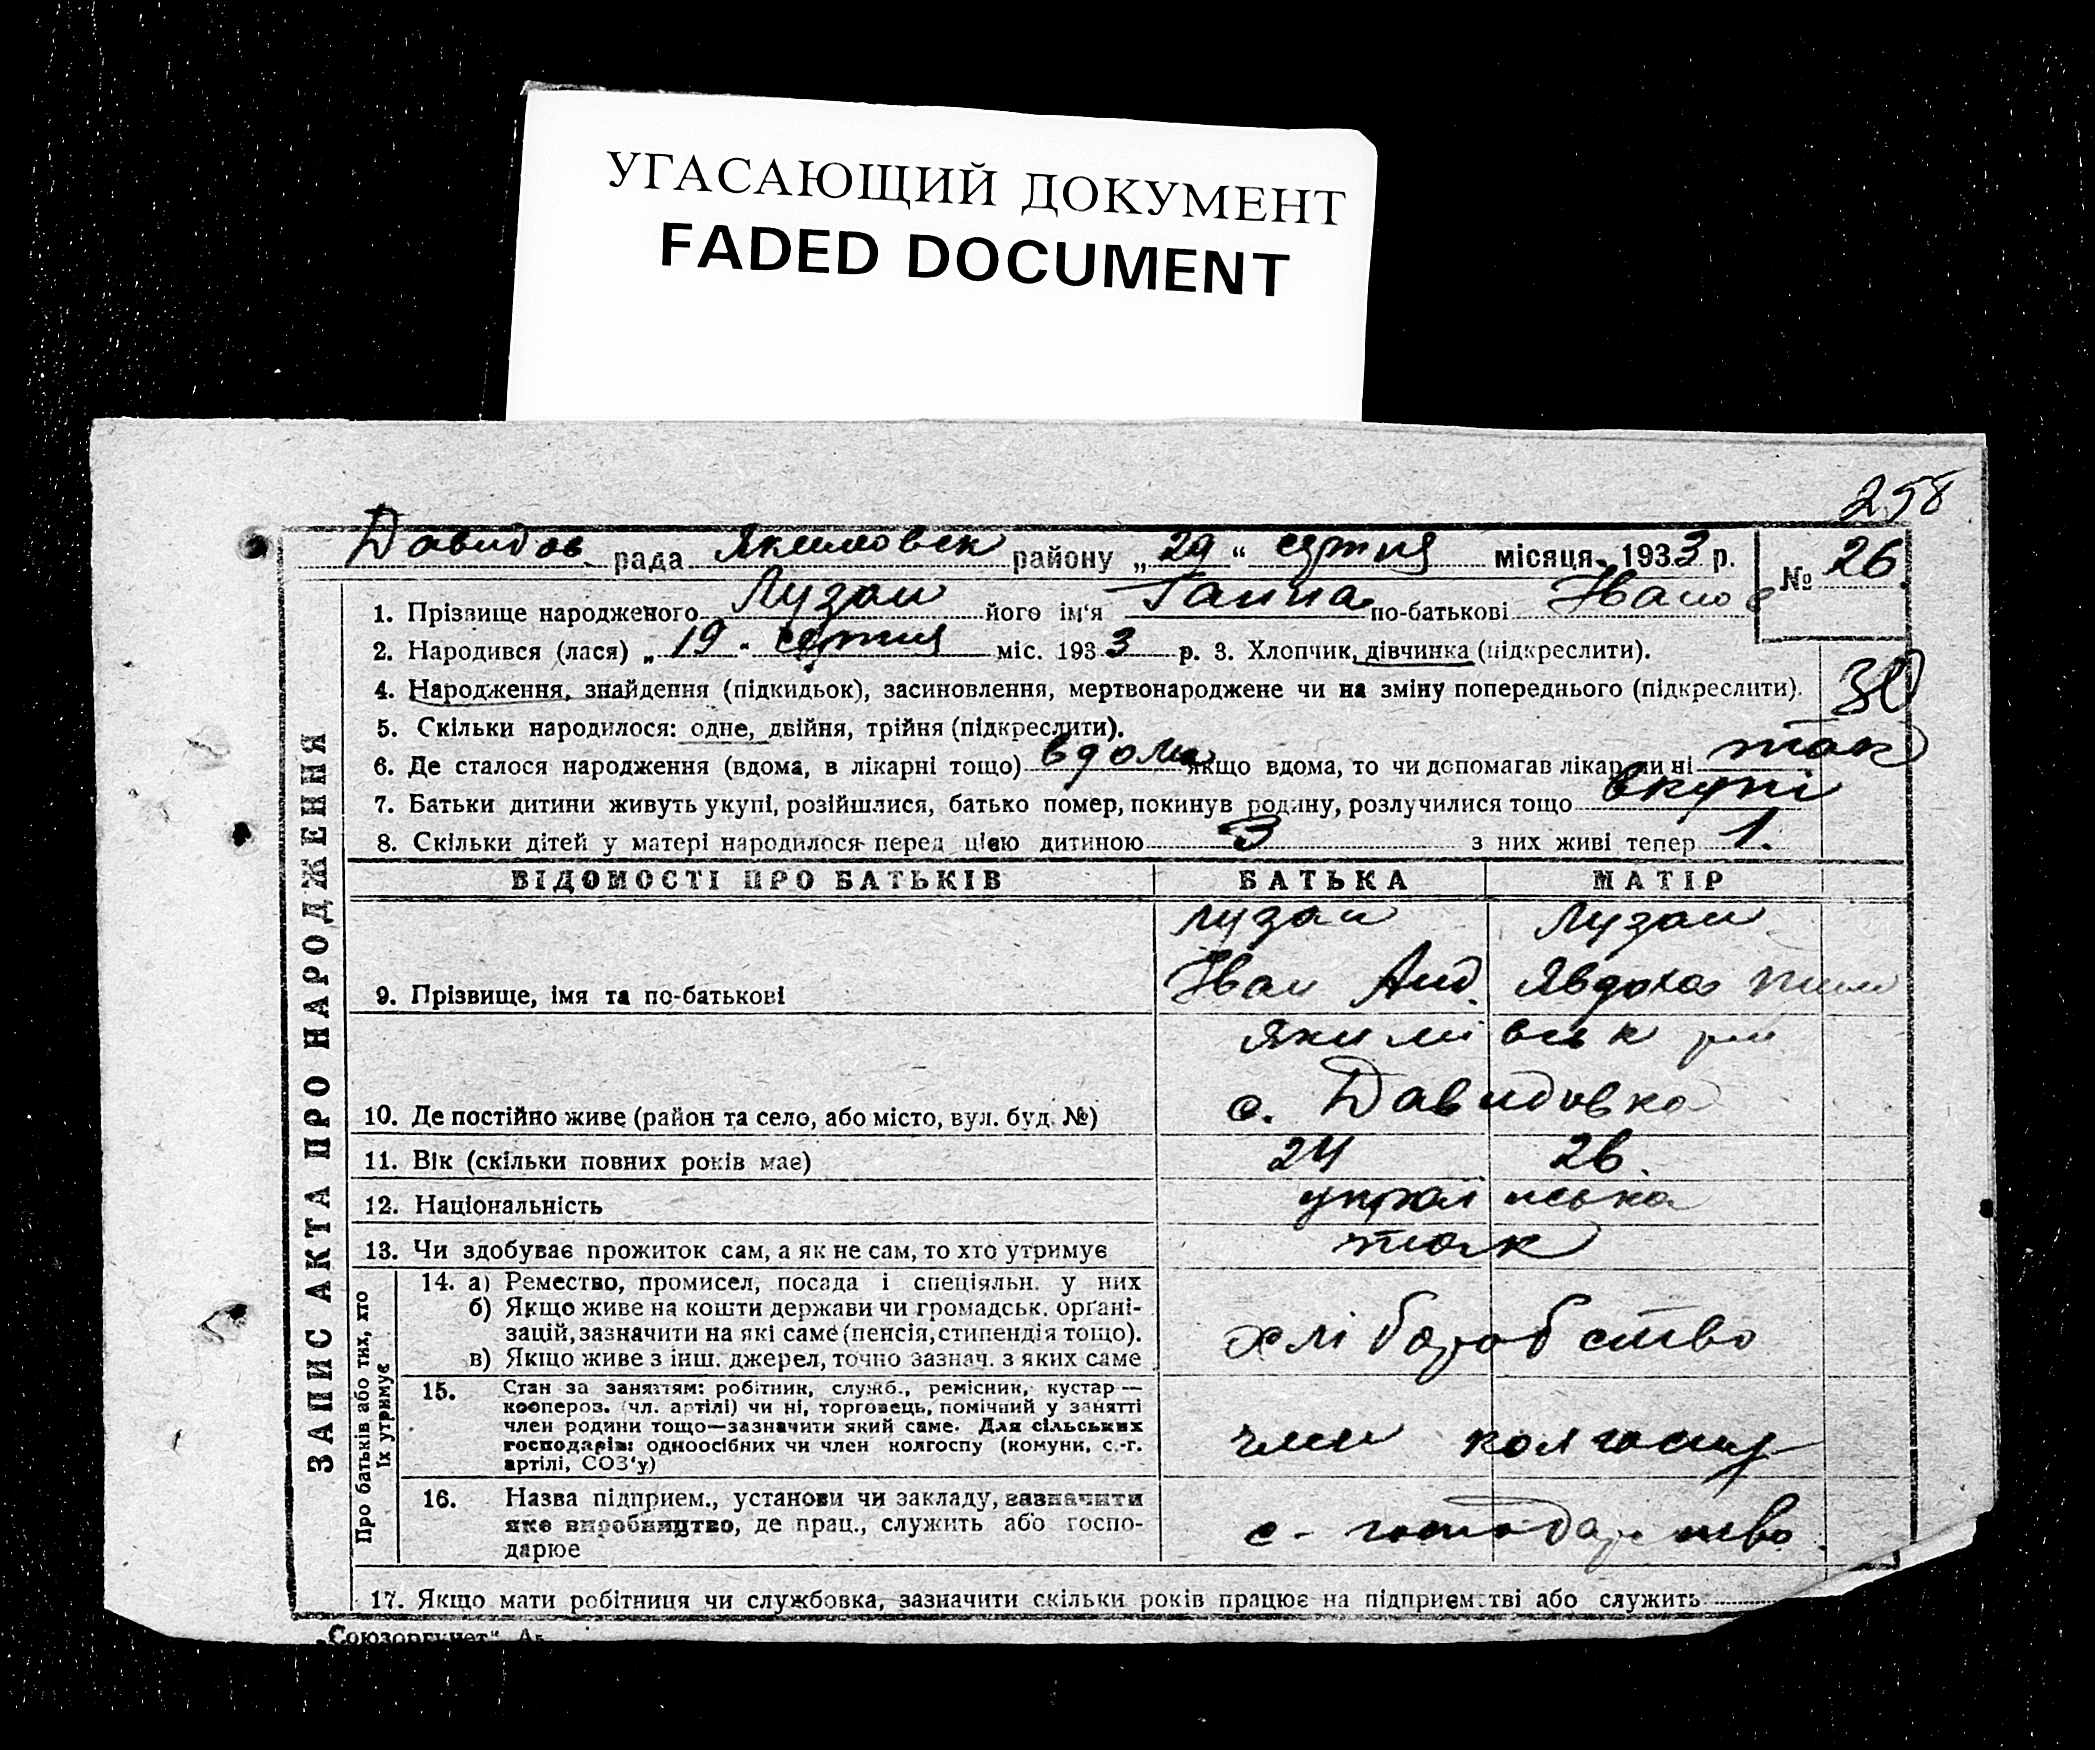 УГАСАЮЩИЙ ДОКУМЕНТ
FADED DOCUMENT
258
Давидов рада Якимовск района „29“ серпня місяця 1933 р. № 26
1. Прізвище народженого Лузан його ім'я Ганна по-батькові Іванов
2. Народився (лася) „19“ серпня міс. 1933 р. 3. Хлопчик, дівчинка (підкреслити).
4. Народження, знайдення (підкидьок), засиновлення, мертвонароджене чи на зміну попереднього (підкреслити).
30
5. Скільки народилося: одне, двійня, трійня (підкреслити).
6. Де сталося народження (вдома, в лікарні тощо) вдома якщо вдома, то чи допомагав лікар чи ні так
7. Батьки дитини живуть укупі, розійшлися, батько помер, покинув родину, розлучилися тощо вкупі
8. Скільки дітей у матері народилося перед цією дитиною 3 з них живі тепер 1.
ЗАПИС АКТА ПРО НАРОДЖЕННЯ
ВІДОМОСТІ ПРО БАТЬКІВ БАТЬКА МАТІР
Лузан Лузан
9. Прізвище, імя та по-батькові Іван Анд. Явдоха
Якимівськ р-н
10. Де постійно живе (район та село, або місто, вул. буд. №) с. Давидовка
11. Вік (скільки повних років має) 24 26.
12. Національність українська
13. Чи здобуває прожиток сам, а як не сам, то хто утримує так
Про батьків або тих, хто їх утримує
14. а) Ремество, промисел, посада і спеціяльн. у них
б) Якщо живе на кошти держави чи громадськ. органі-
зацій, зазначити на які саме (пенсія, стипендія тощо).
в) Якщо живе з інш. джерел, точно зазнач. з яких саме
хліборобство
15. Стан за заняттям: робітник, служб., ремісник, кустар —
коопероз. (чл. артілі) чи ні, торговець, помічний у занятті
член родини тощо—зазначити який саме. Для сільських
господарів: одноосібних чи член колгоспу (комуни, с.-г.
артілі, СОЗ'у)
член колгоспу
16. Назва підприєм., установи чи закладу, зазначити
яке виробництво, де прац., служить або госпо-
дарює
с-господарство
17. Якщо мати робітниця чи службовка, зазначити скільки років працює на підприємстві або служить